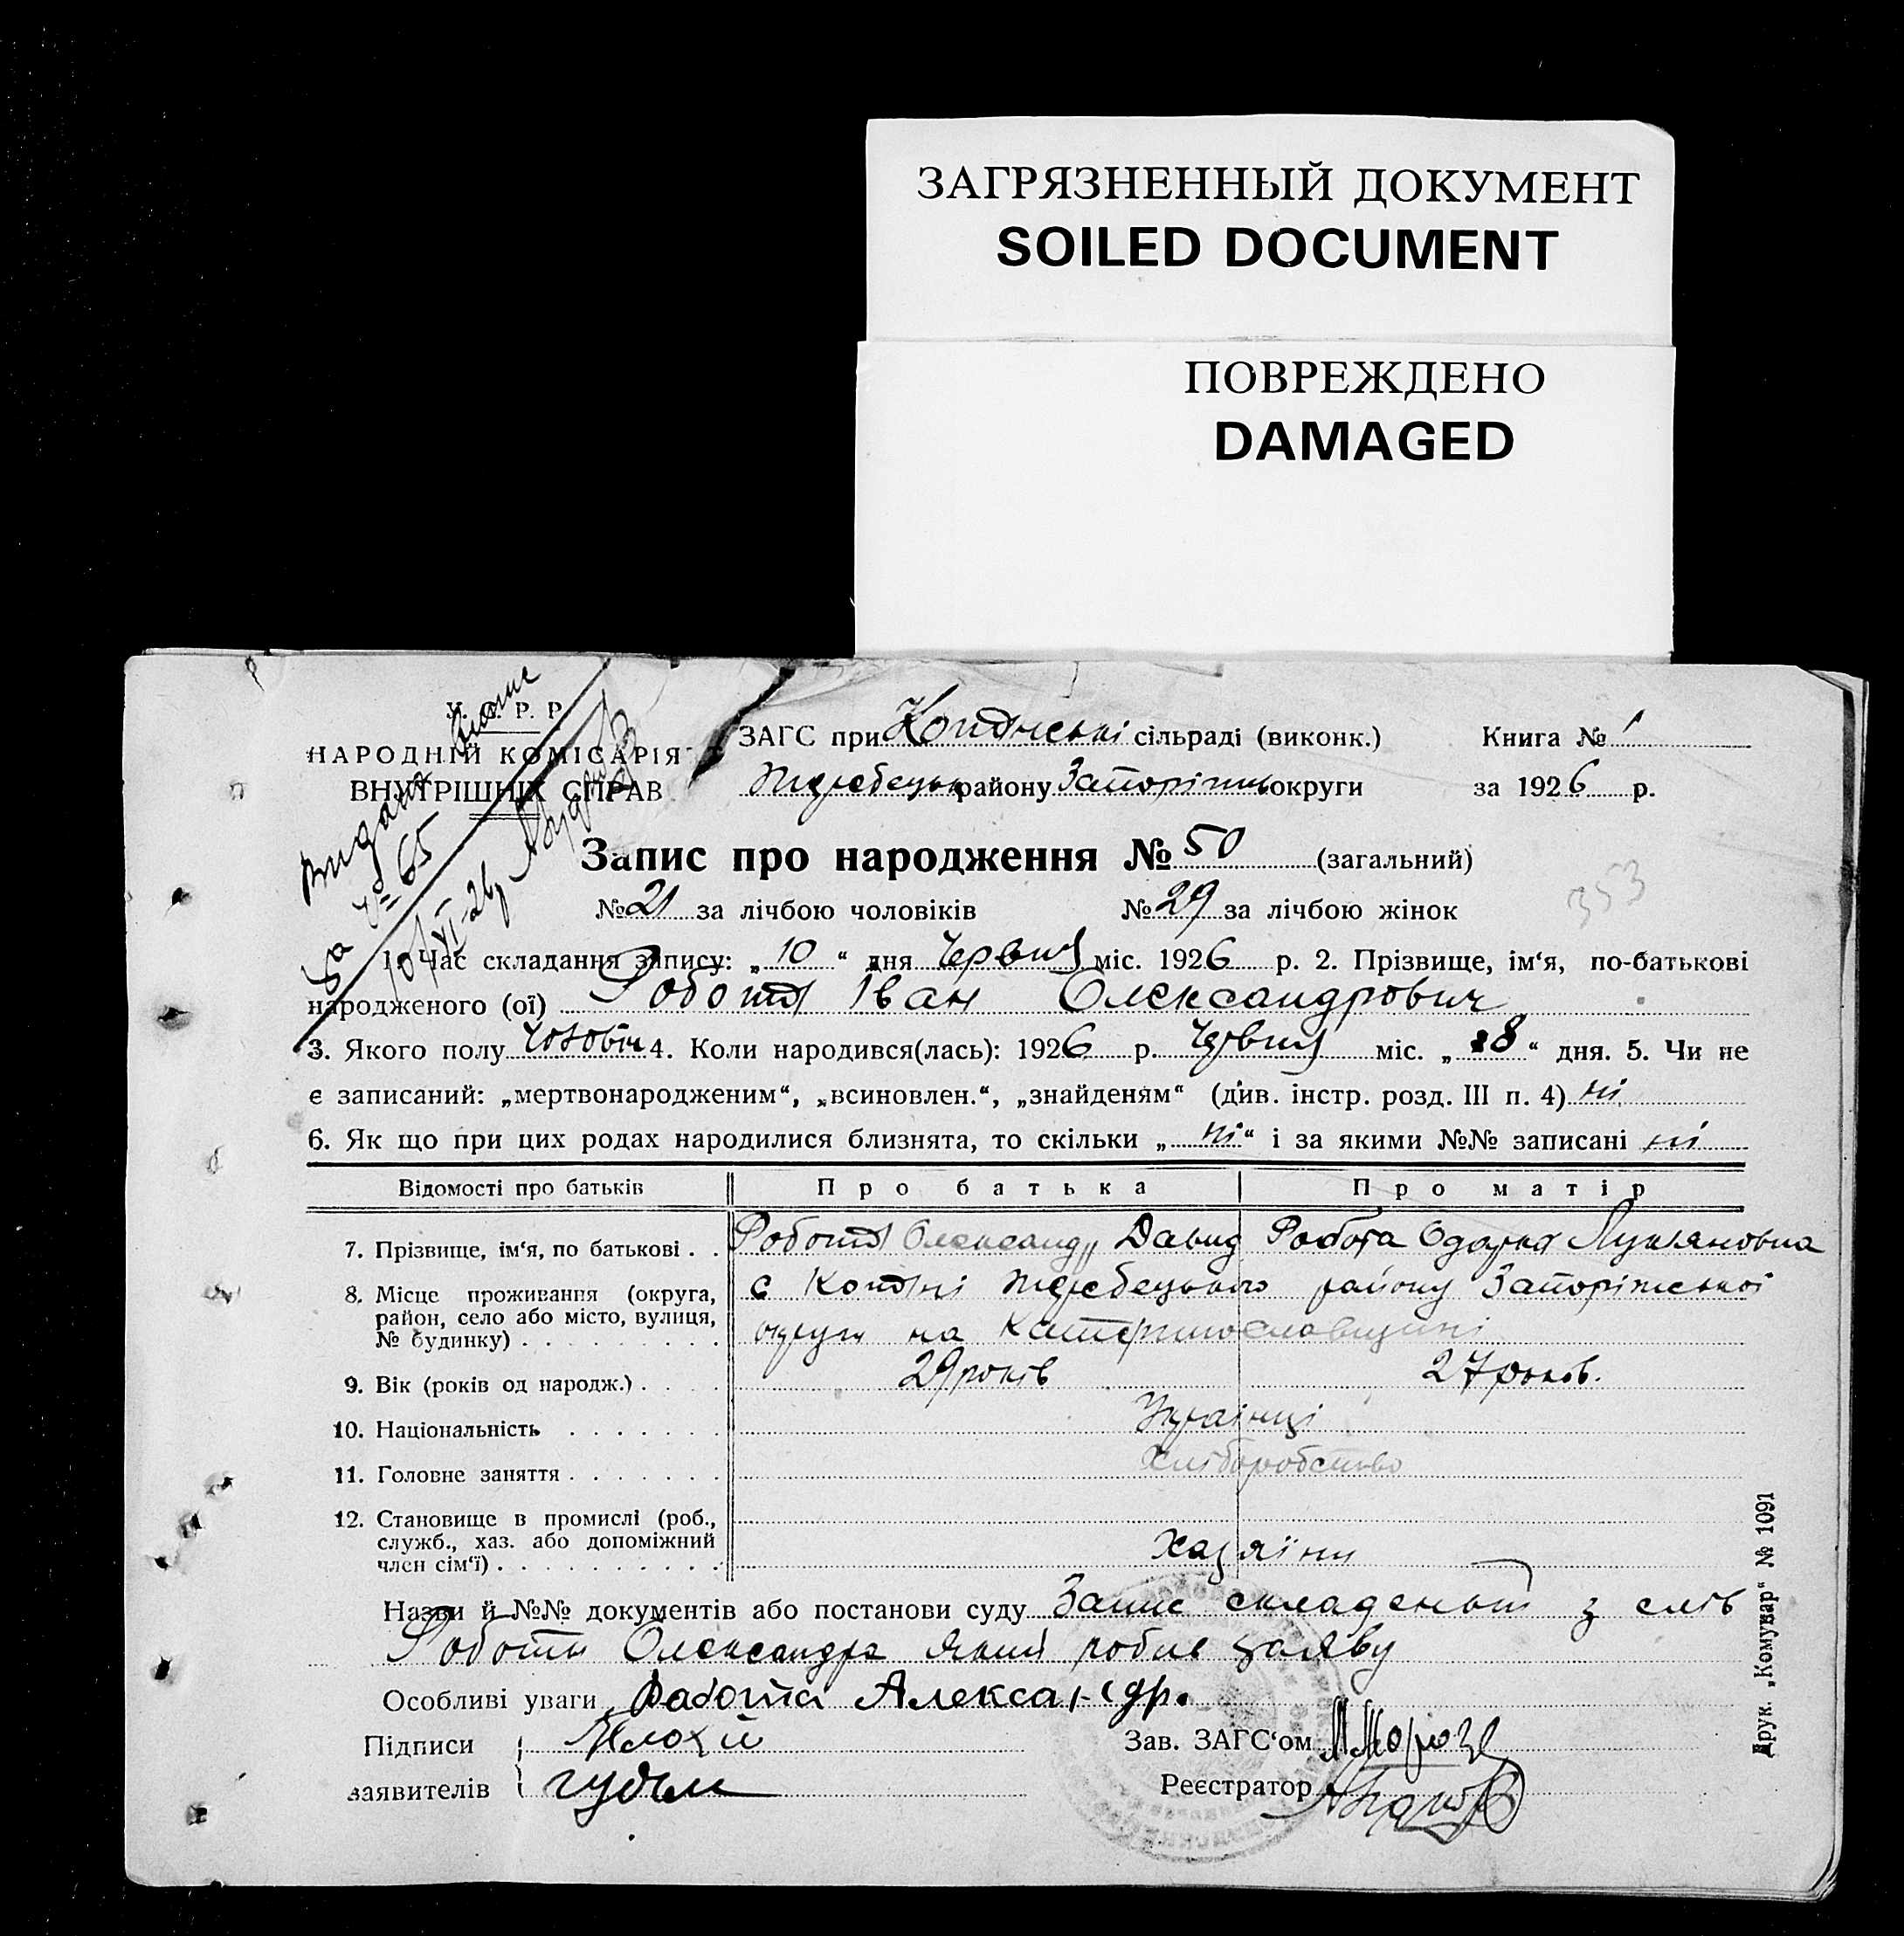 ЗАГРЯЗНЕННЫЙ ДОКУМЕНТ
SOILED DOCUMENT
ПОВРЕЖДЕНО
DAMAGED
У. С. Р. Р.
НАРОДНІЙ КОМІСАРІЯТ
ВНУТРІШНІХ СПРАВ
Видана
за № 65
10/VI-26
ЗАГС при Копанські сільраді (виконк.) Книга № 1
Жеребецьк району Запоріжськ округи за 1926 р.
Запис про народження № 50 (загальний)
№ 21 за лічбою чоловіків № 29 за лічбою жінок
353
1. Час складання запису: „ 10 “ дня Червня міс. 1926 р. 2. Прізвище, ім‘я, по-батькові
народженого (ої) Робота Іван Олександрович
3. Якого полу чоловіч 4. Коли народився(лась): 1926 р. Червня міс. „ 8 “ дня. 5. Чи не
є записаний: „мертвонародженим“, „всиновлен.“, „знайденям“ (див. інстр. розд. III п. 4) ні
6. Як що при цих родах народилися близнята, то скільки „ ні “ і за якими №№ записані ні
Відомості про батьків Про батька Про матір
7. Прізвище, ім‘я, по батькові . . Робота Олександр Давид Робота Одарка Лукяновна
8. Місце проживання (округа, район, село або місто, вулиця, № будинку) с Копані Жеребецького району Запоріжської
округи на Катеринославщині
9. Вік (років од народж.) . . . . 29 років 27 років.
10. Національність . . . . . . . Українці
11. Головне заняття . . . . . . . Хліборобство
12. Становище в промислі (роб., служб., хаз. або допоміжний член сім‘ї) . . . . . . . . . . Хазяіни
Назви й №№ документів або постанови суду Запис складений з слів
Роботи Олександра який робив заяву
Особливі уваги Работа Александр.
Підписи Плохий Зав. ЗАГС‘ом М Мороз
заявителів Реєстратор
Друк. „Комунар“ № 1091